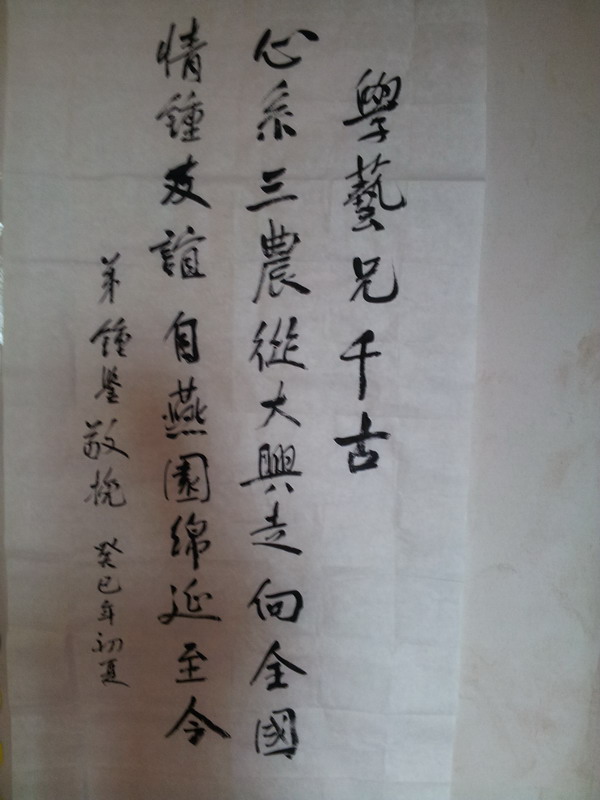 學藝兄千古
心系三農從大興走向全國
情鍾友誼自燕園綿延至今
弟鍾鋻敬挽 癸巳年初夏